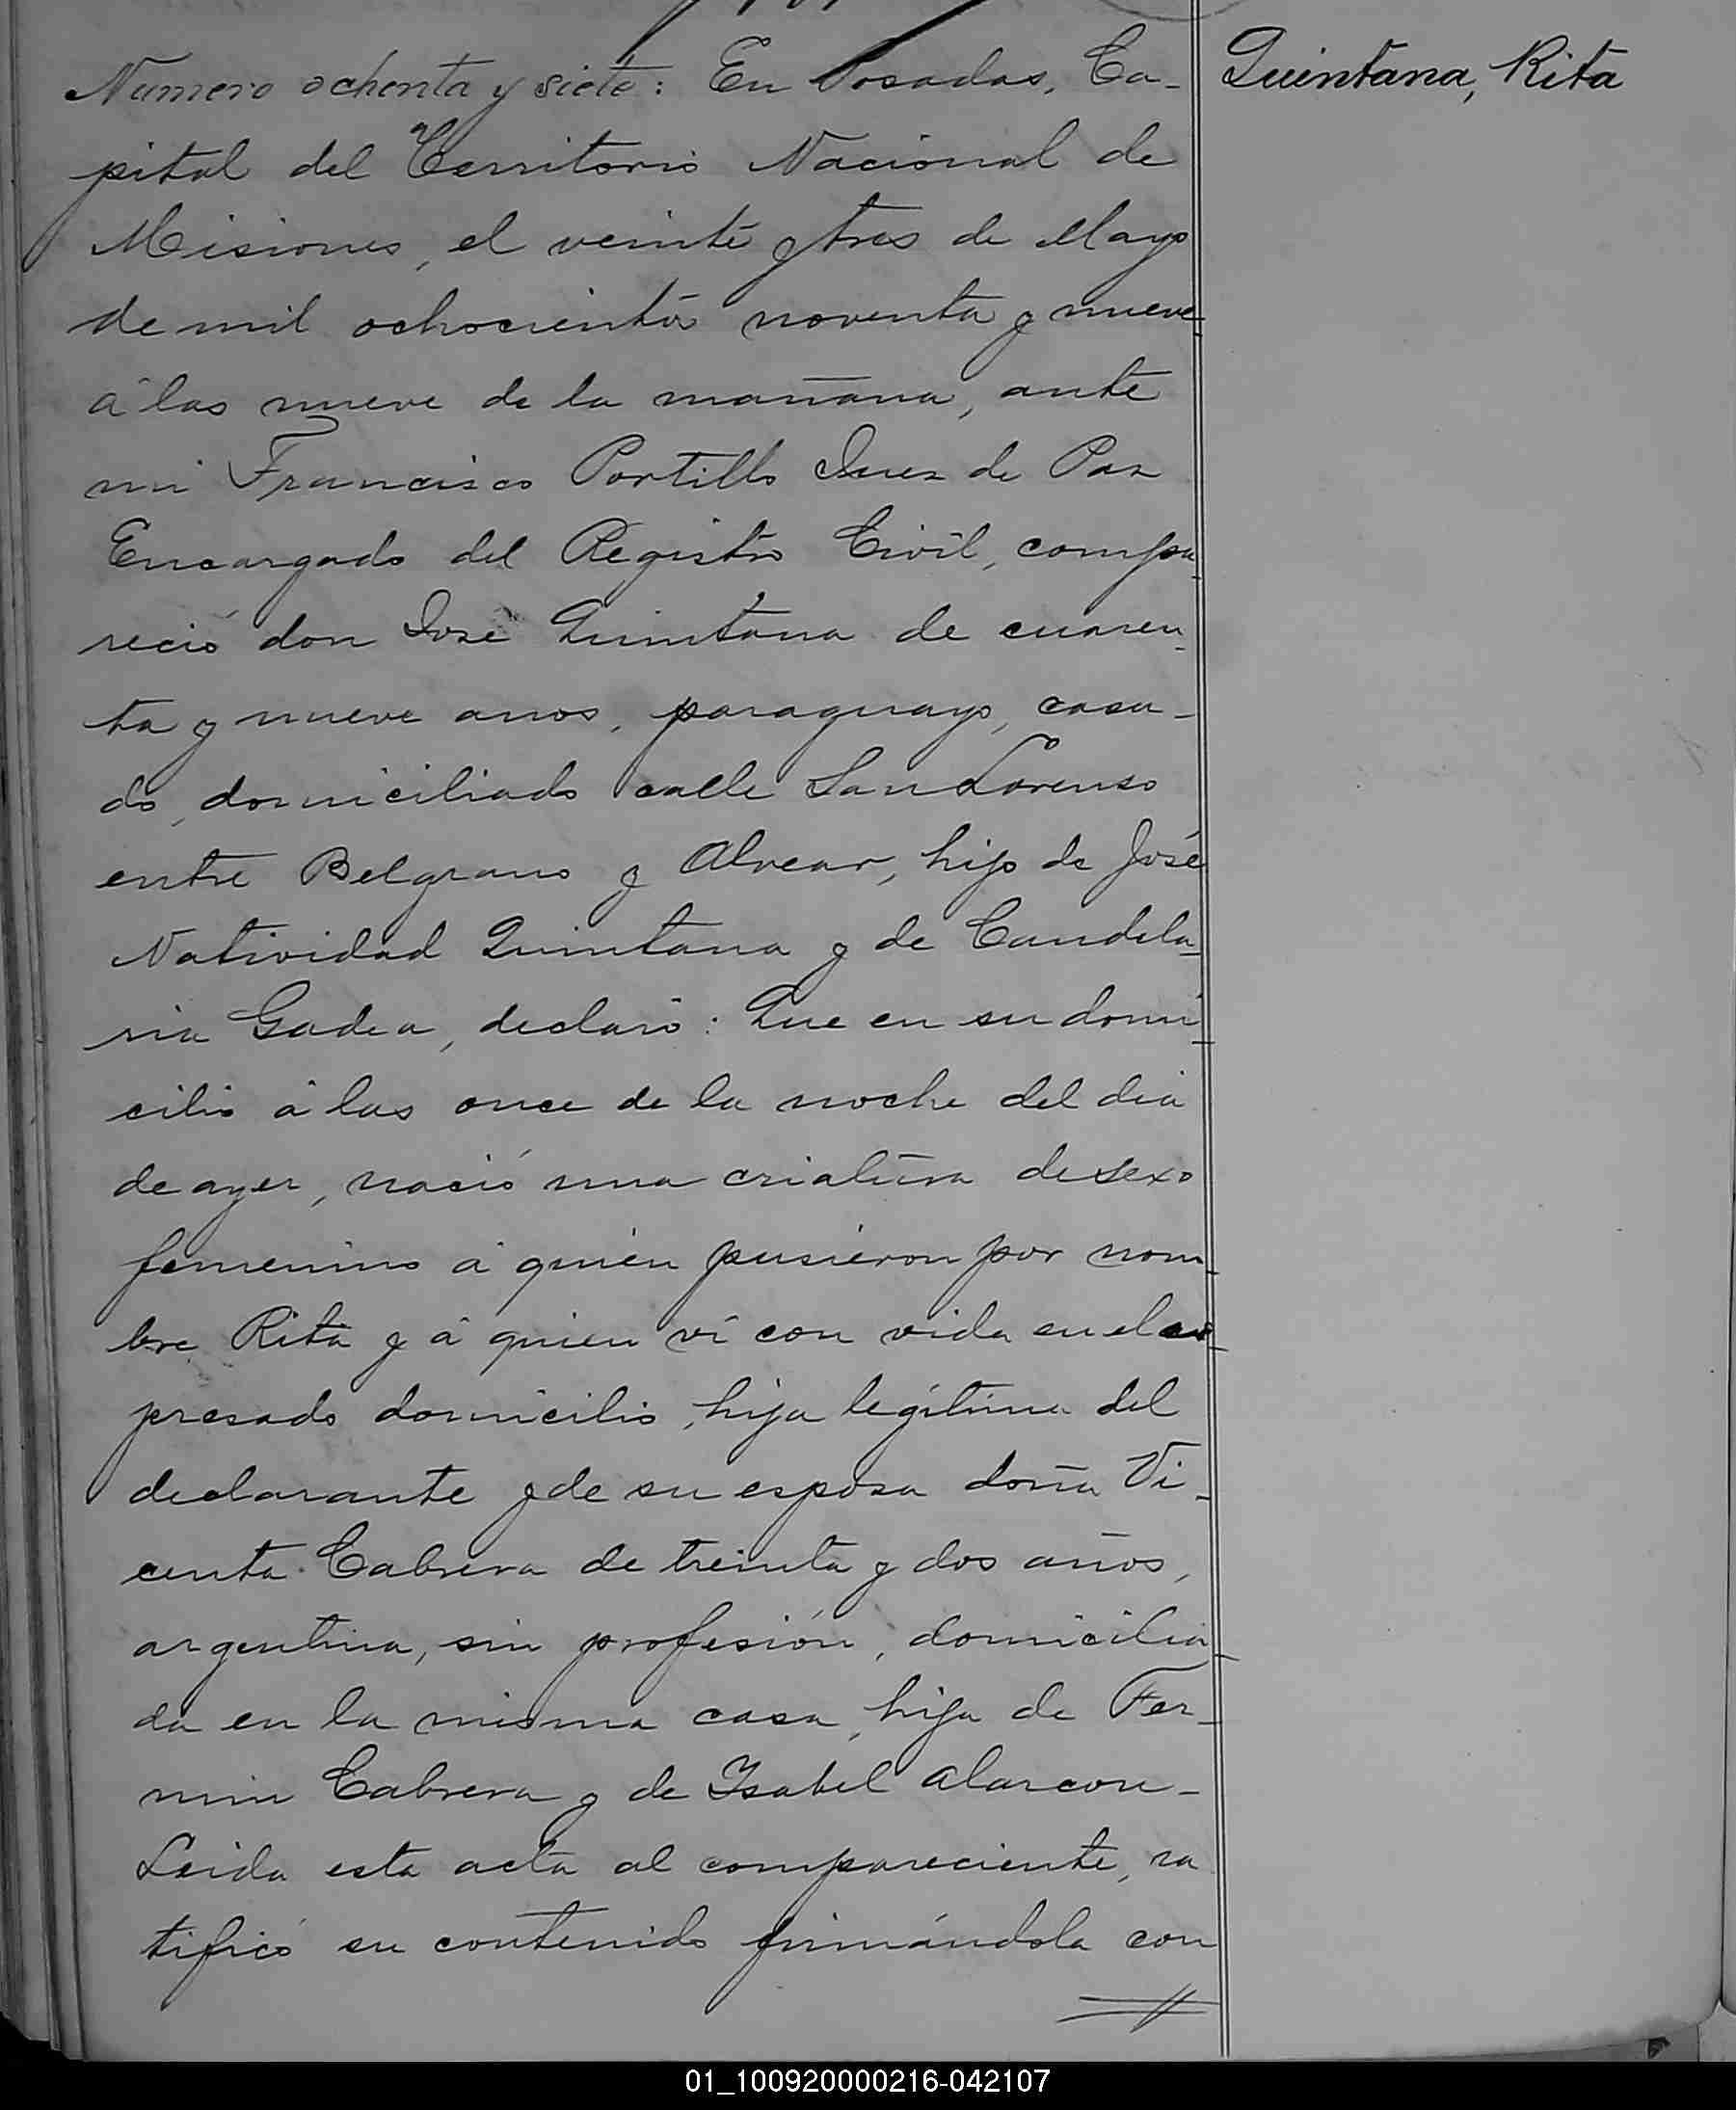 Numero ochenta y siete: En Posadas, Ca-
pital del Territorio Nacional de
Misiones, el veinte y tres de Mayo
de mil ochocientos noventa y nueve
á las nueve de la mañana, ante
mi Francisco Portillo Juez de Paz
Encargado del Registro Civil, compa-
reció don José Quintana de cuaren-
ta y nueve anos, paraguayo, casa-
do, domiciliado calle San Lorenso
entre Belgrano y Alvear, hijo de José
Natividad Quintana y de Candela-
ria Gadea, declaró: Que en su domi-
cilio á las once de la noche del dia
de ayer, nació una criatura de sexo
femenino á quien pusieron por nom-
bre Rita y á quien ví con vida en el ex-
presado domicilio, hija legítima del
declarante y de su esposa doña Vi-
centa Cabrera de treinta y dos años,
argentina, sin profesión, domicilia-
da en la misma casa, hija de Fer-
min Cabrera y de Isabel Alarcon-
Leida esta acta al compareciente, ra
tificó su contenido firmándola con
Quintana, Rita
01_100920000216-042107